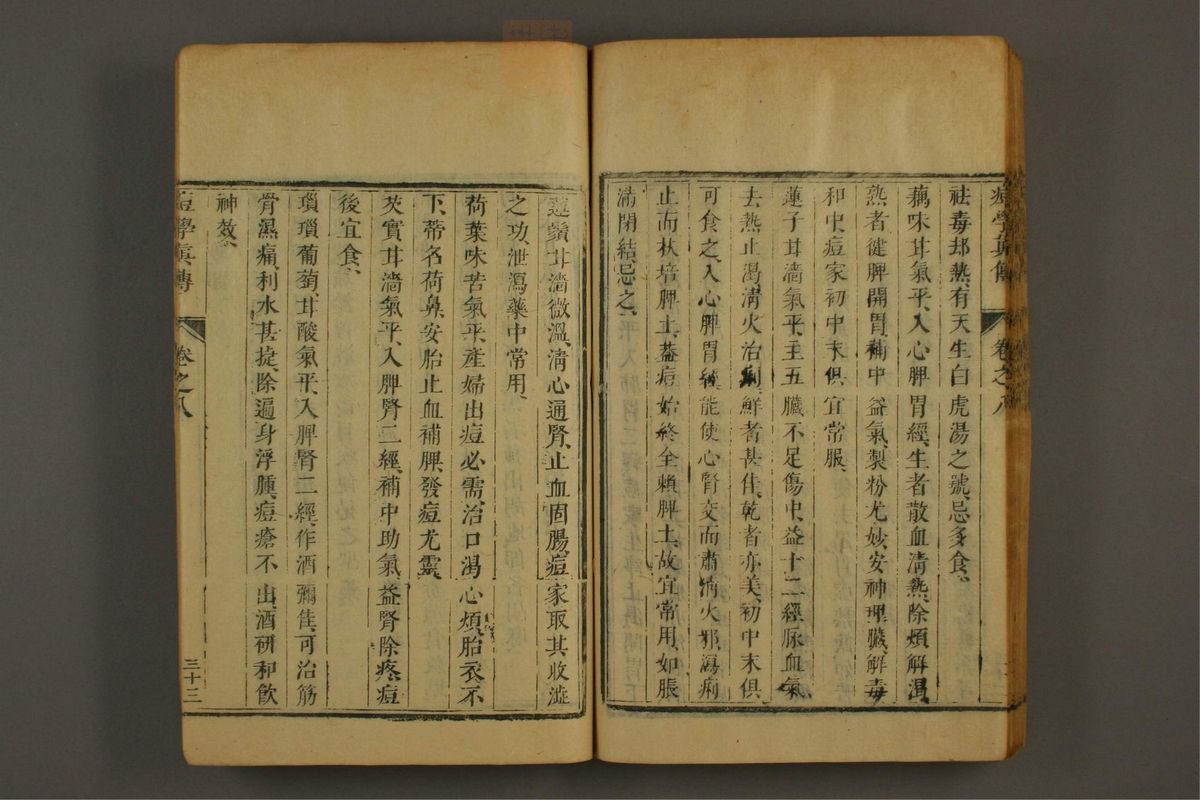 痘學眞傳 卷之八
祛毒却熱、有天生白虎湯之號、忌多食、
藕味甘氣平、入心脾胃經、生者散血清熱、除煩解渴
熱者健脾開胃、補中益氣、製粉尤妙、安神理臟、解毒
和中、痘家初中末俱宜常服、
蓮子甘濇氣平、主五臟不足傷中、益十二經脉血氣
去熱止渴、淸火治痢、鮮者甚佳、乾者亦美、初中末俱
可食之、入心脾胃經、能使心腎交而肅淸火邪、瀉痢
止而扶培脾土、葢痘始終全賴脾土、故宜常用、如脹
滿閉結、忌之、
蓮鬚甘濇微溫、淸心通腎、止血固腸、痘家取其收澁
之功、泄瀉藥中常用、
荷葉味苦氣平、產婦出痘必需、治口渴心煩、胎衣不
下、蒂名荷鼻、安胎止血、補脾發痘尤靈、
芡實甘濇氣平、入脾腎二經、補中助氣、益腎除疼、痘
後宜食、
瑣瑣葡萄甘酸氣平、入脾腎二經、作酒彌佳、可治筋
骨濕痛、利水甚捷、除遍身浮腫、痘瘡不出、酒研和飮
神效、
痘學眞傳 卷之八 三十三